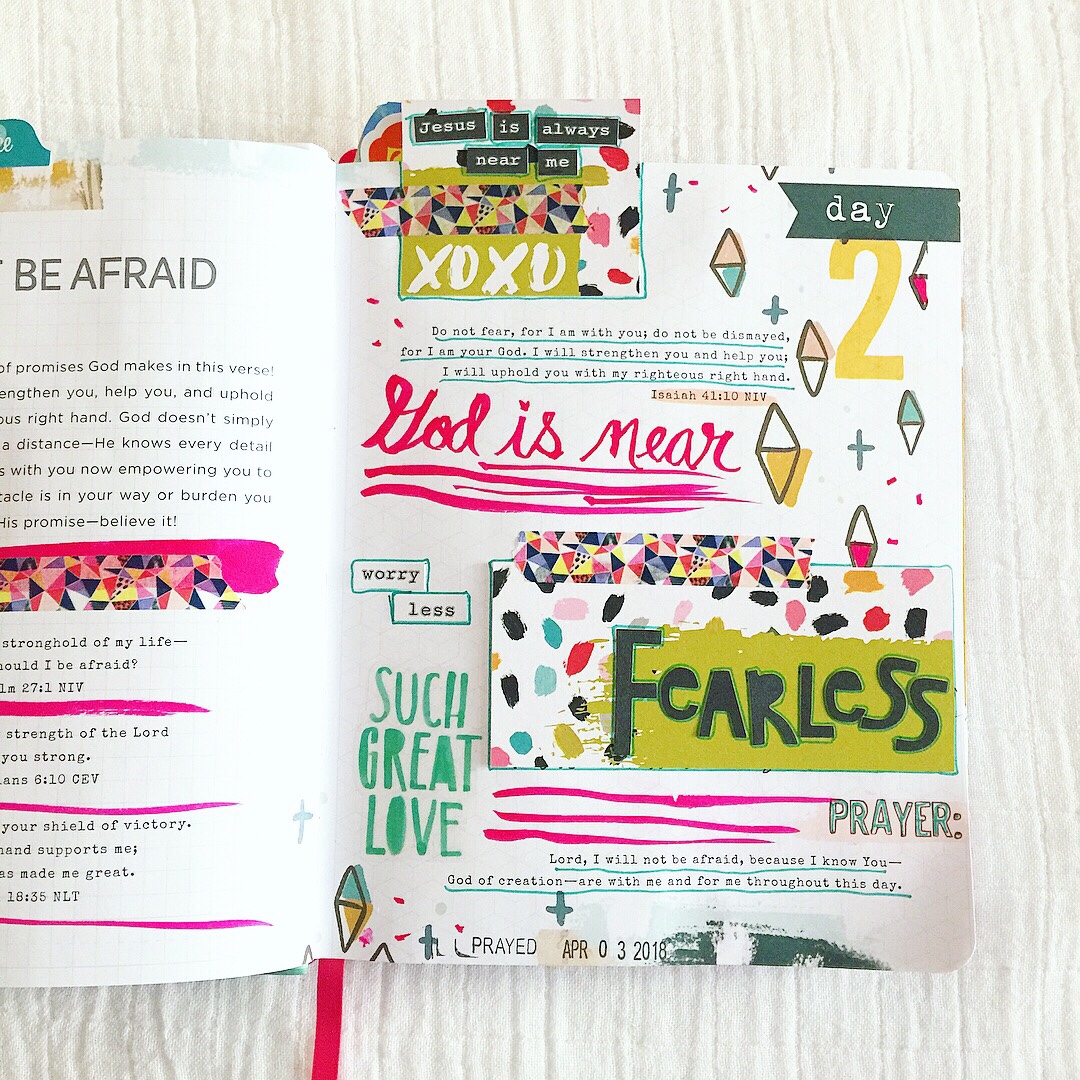 BE AFRAID
of promises God makes in this verse!
engthen you, help you, and uphold
ous right hand. God doesn't simply
a distance—He knows every detail
s with you now empowering you to
tacle is in your way or burden you
His promise—believe it!
stronghold of my life—
hould I be afraid?
lm 27:1 NIV
strength of the Lord
you strong.
ians 6:10 CEV
your shield of victory.
hand supports me;
as made me great.
18:35 NLT
Jesus is always
near me
XOXO
day
2
Do not fear, for I am with you; do not be dismayed,
for I am your God. I will strengthen you and help you;
I will uphold you with my righteous right hand.
Isaiah 41:10 NIV
God is near
worry
less
FeARLeSS
SUCH
GREAT
LOVE
PRAYER:
Lord, I will not be afraid, because I know You—
God of creation—are with me and for me throughout this day.
PRAYED APR 03 2018